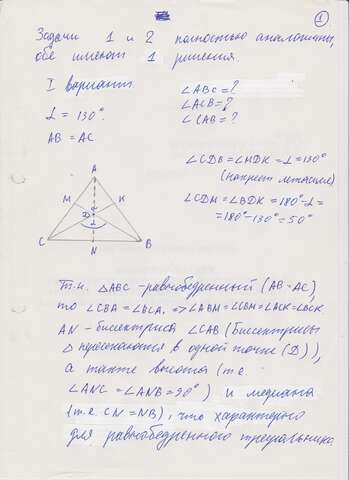 1
Задачи 1 и 2 полностью аналогичны,
обе имеют 1 решения.
I вариант
∠ABC = ?
∠ACB = ?
∠CAB = ?
α = 130°
AB = AC
∠CDB = ∠MDK = α = 130°
∠CDM = ∠BDK = 180° - α =
= 180° - 130° = 50°
A
M
K
D
α
C
N
B
Т.к. △ABC - равнобедренный (AB = AC),
то ∠CBA = ∠BCA. => ∠ABM = ∠CBM = ∠ACK = ∠BCK.
AN - биссектриса ∠CAB (биссектрисы
△ пересекаются в одной точке (D)),
а также высота (т.е.
∠ANC = ∠ANB = 90°) и медиана
(т.е. CN = NB), что характерно
для равнобедренного треугольника